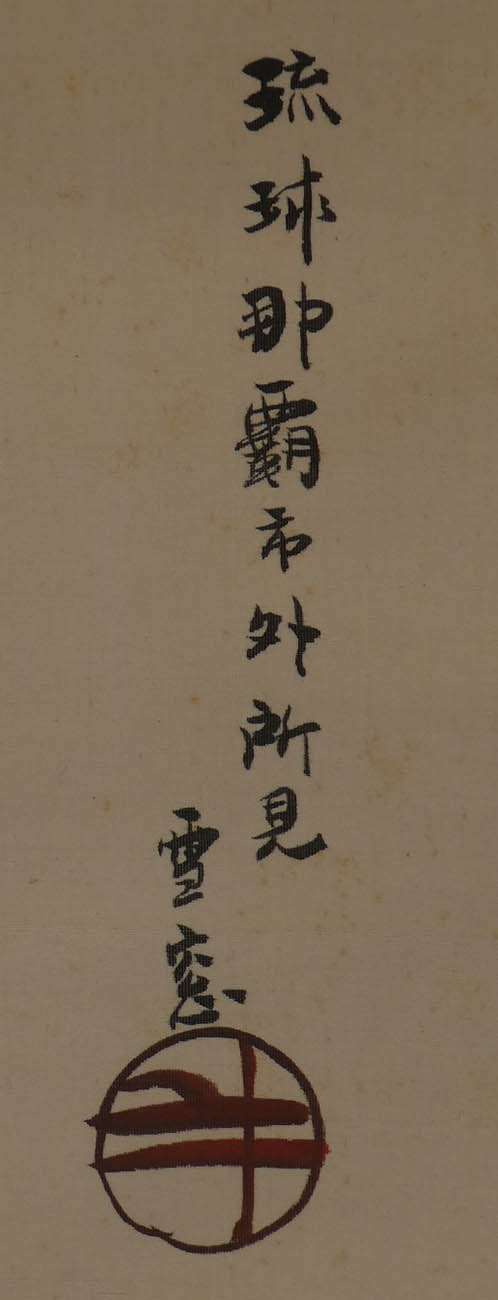 琉球那覇市外所見
雪窓